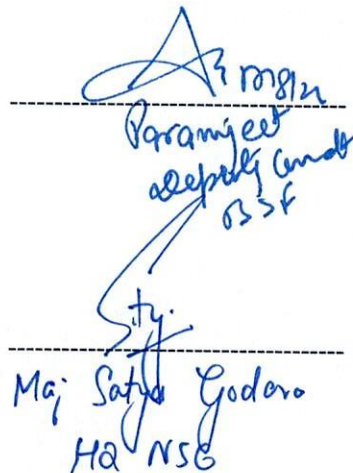 Paramjeet
Deputy Comdt
BSF
Maj Satya Godara
HQ NSG